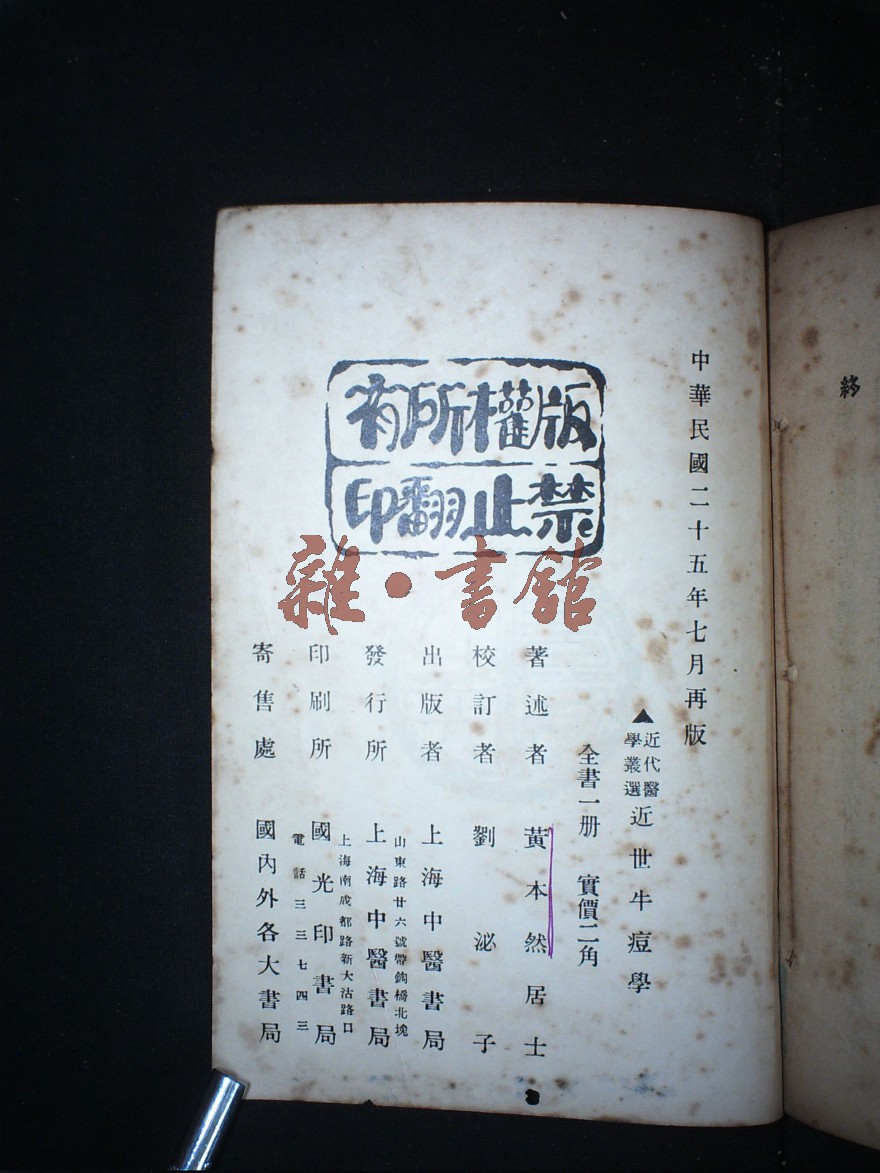 終
中華民國二十五年七月再版
▲近代醫學叢選 近世牛痘學
全書一册 實價二角
著述者 黃本然居士
校訂者 劉泌子
出版者 上海中醫書局
山東路廿六號帶鈎橋北堍
發行所 上海中醫書局
上海南成都路新大沽路口
印刷所 國光印書局
電話三三七四三
寄售處 國內外各大書局
版權所有
禁止翻印
雜·書館